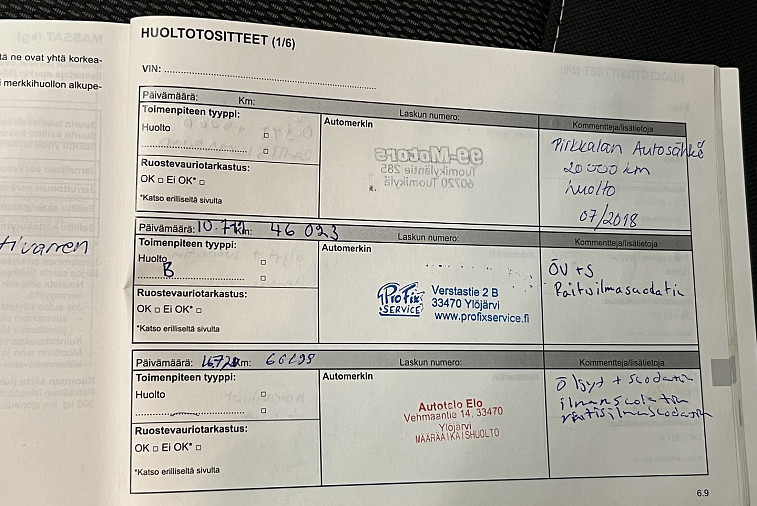 HUOLTOTOSITTEET (1/6)
tä ne ovat yhtä korkea-
i merkkihuollon alkupe-
VIN:
Päivämäärä: Km: Laskun numero: Kommentteja/lisätietoja
Toimenpiteen tyyppi:
Huolto
Automerkin
99-Motors
Tuomikyläntie 285
60720 Tuomikylä
Pirkkalan Autosähkö
20 000 km
huolto
07/2018
Ruostevauriotarkastus:
OK □ Ei OK* □
*Katso erilliseltä sivulta
tivarren
Päivämäärä: Km: 46 093 Laskun numero: Kommentteja/lisätietoja
Toimenpiteen tyyppi:
Huolto
B
Automerkin
ProFix
SERVICE
Verstastie 2 B
33470 Ylöjärvi
www.profixservice.fi
ÖV + S
Raitisilmasuodatin
Ruostevauriotarkastus:
OK □ Ei OK* □
*Katso erilliseltä sivulta
Päivämäärä: Km: Laskun numero: Kommentteja/lisätietoja
Toimenpiteen tyyppi:
Huolto
Automerkin
Autotalo Elo
Vehmaantie 14, 33470
Ylöjärvi
MÄÄRÄAIKAISHUOLTO
Ruostevauriotarkastus:
OK □ Ei OK* □
*Katso erilliseltä sivulta
6.9